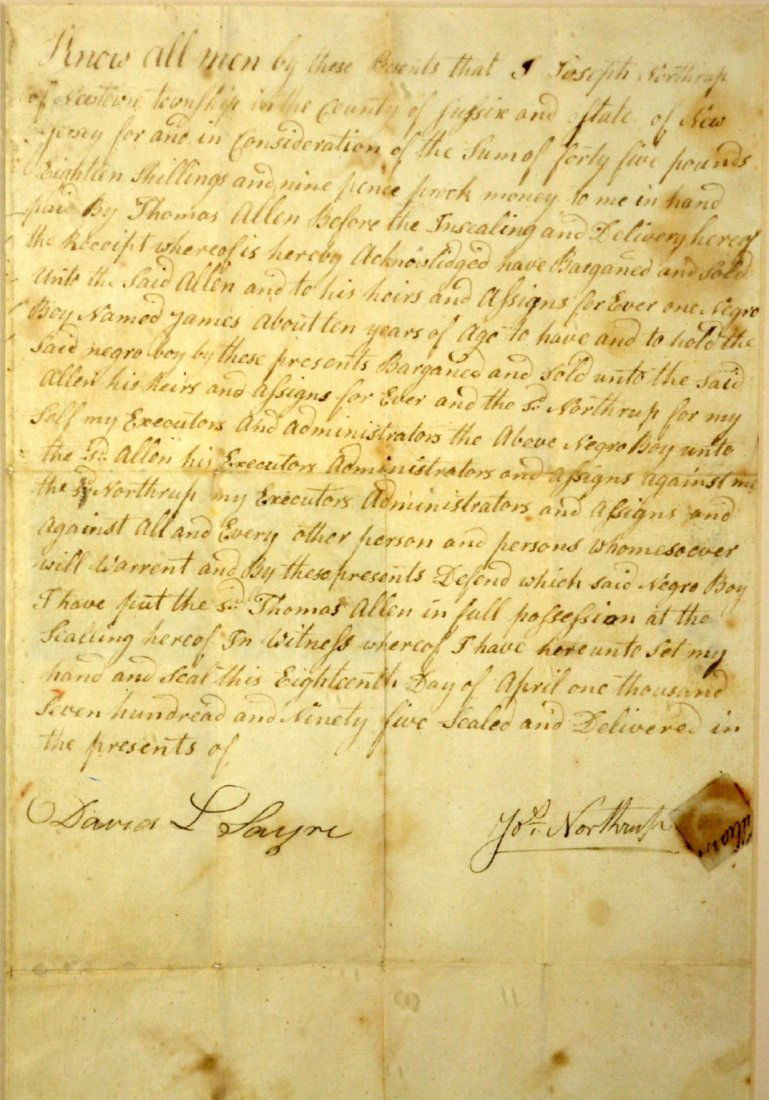 Know all men by these Presents that I Joseph Northrup
of Newtown township in the County of Sussix and State of New
Jersey for and in Consideration of the Sum of forty five pounds
Eighteen Shillings and nine pence prock money to me in hand
paid By Thomas Allen Before the Insealing and Delivery hereof
the Receipt whereof is hereby Acknowlidged have Barganed and Sold
Unto the Said Allen and to his heirs and Assigns for Ever one Negro
Boy Named James About ten years of Age to have and to hold the
Said negro boy by these presents Barganed and Sold unto the Said
Allen his heirs and Assigns for Ever and the sd Northrup for my
Self my Executors and administrators the Above Negro Boy unto
the sd Allen his Executors Administrators and assigns against me
the sd Northrup my Executors Administrators and assigns and
Against All and Every other person and persons whomesoever
will Warrent and By these presents Defend which said Negro Boy
I have put the sd Thomas Allen in full possession at the
Sealing hereof In Witness whereof I have hereunto Set my
hand and Seal this Eighteenth Day of April one thousand
Seven hundread and Ninety five Sealed and Delivered in
the presents of
David L Sayre
Jos. Northrup